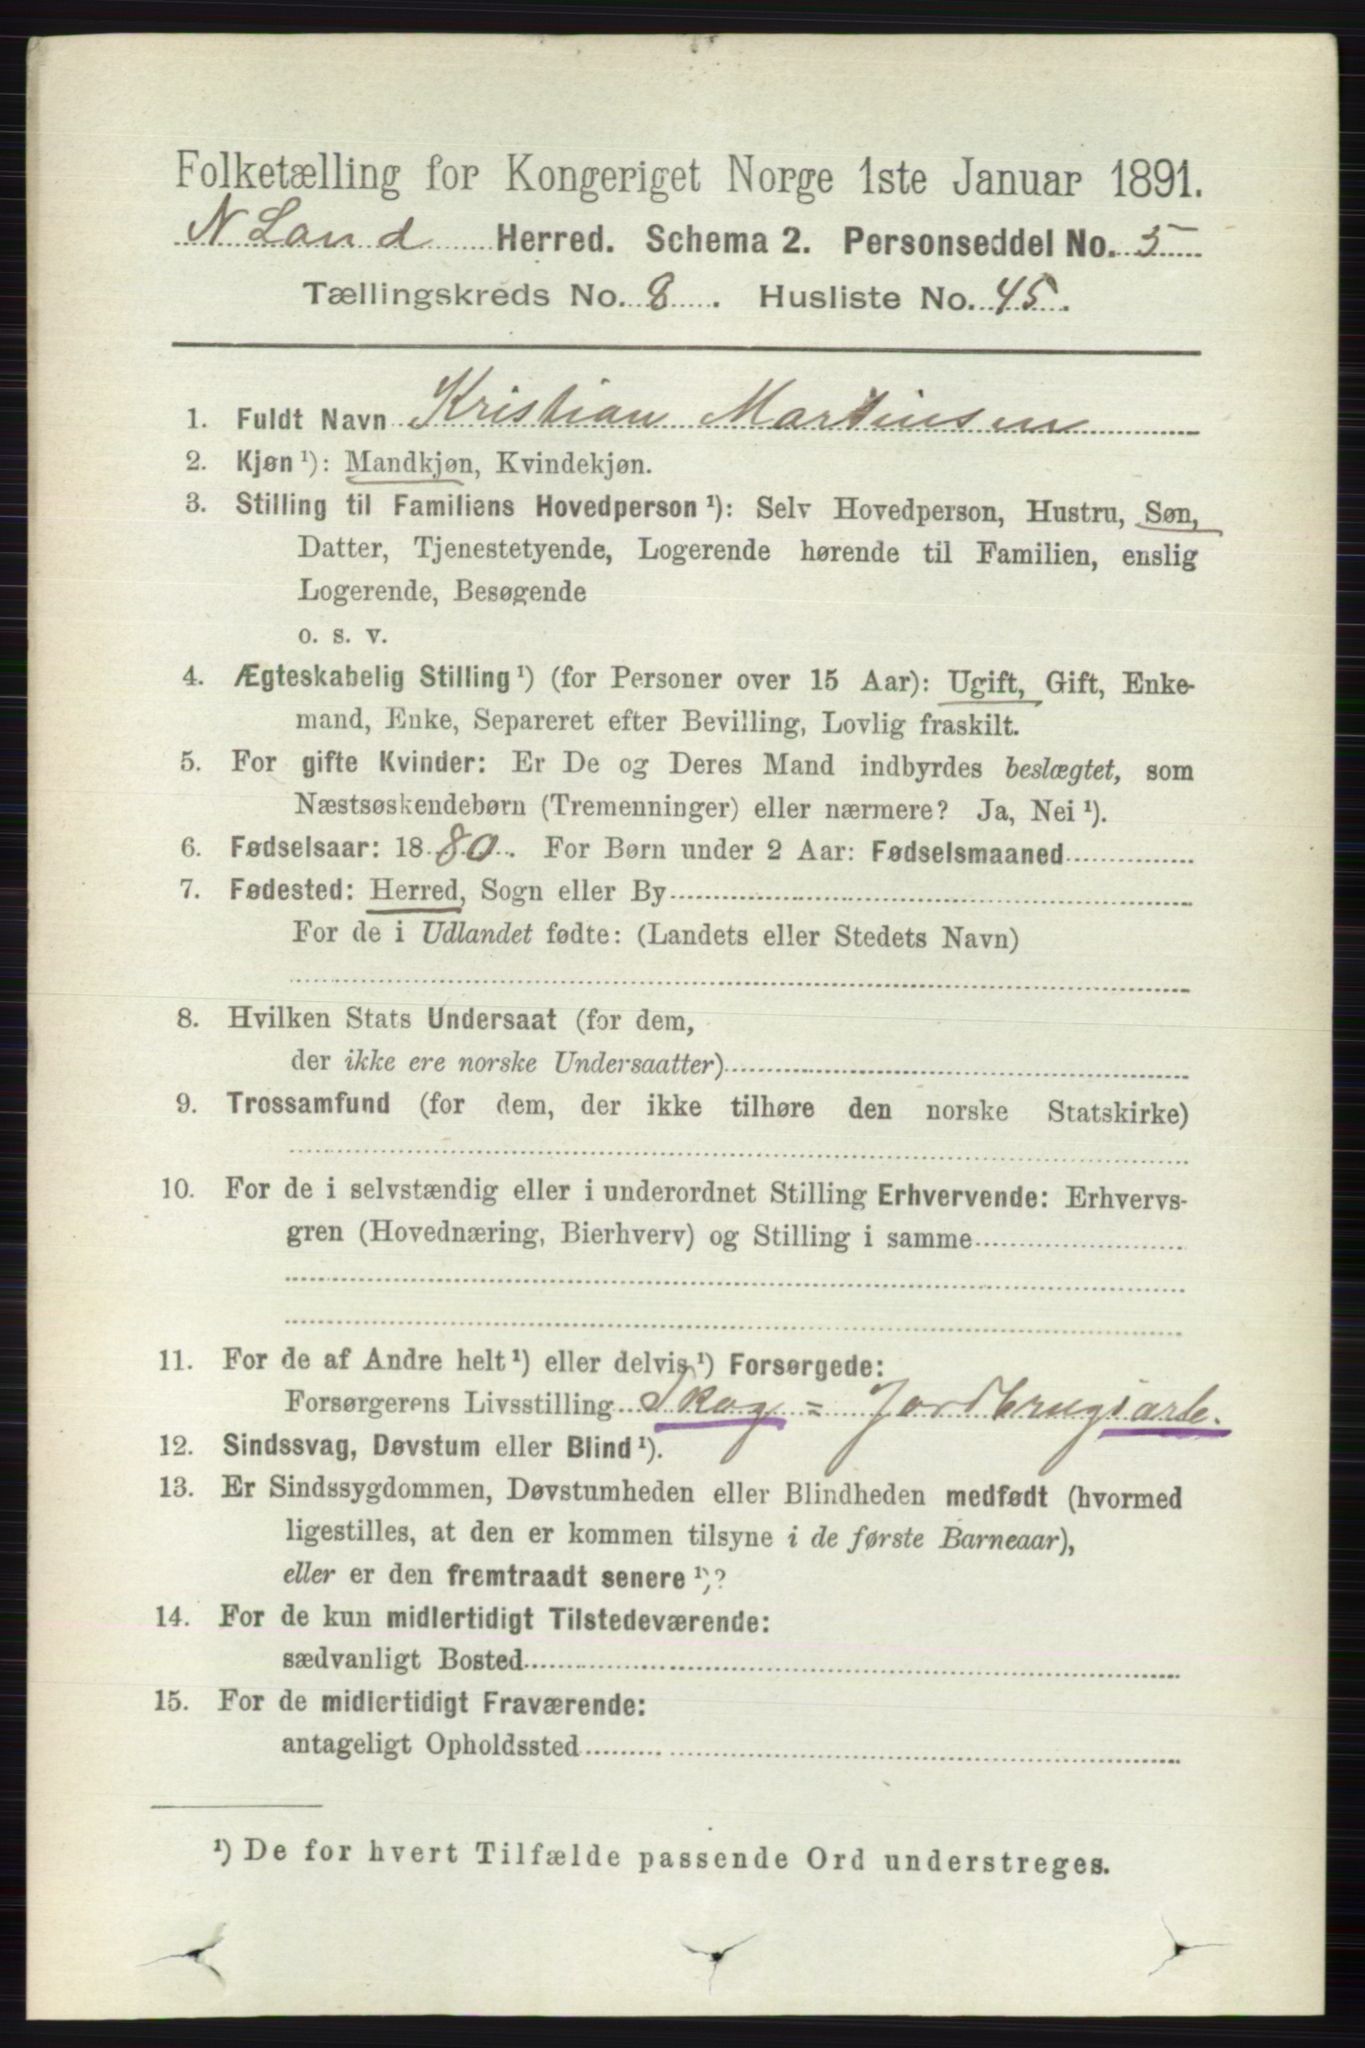 Folketælling for Kongeriget Norge 1ste Januar 1891.
N Land Herred. Schema 2. Personseddel No. 5
Tællingskreds No. 8. Husliste No. 45.
1. Fuldt Navn Kristian Martinsen
2. Kjøn ¹): Mandkjøn, Kvindekjøn.
3. Stilling til Familiens Hovedperson ¹): Selv Hovedperson, Hustru, Søn,
Datter, Tjenestetyende, Logerende hørende til Familien, enslig
Logerende, Besøgende
o. s. v.
4. Ægteskabelig Stilling ¹) (for Personer over 15 Aar): Ugift, Gift, Enke-
mand, Enke, Separeret efter Bevilling, Lovlig fraskilt.
5. For gifte Kvinder: Er De og Deres Mand indbyrdes beslægtet, som
Næstsøskendebørn (Tremenninger) eller nærmere? Ja, Nei ¹).
6. Fødselsaar: 1880. For Børn under 2 Aar: Fødselsmaaned
7. Fødested: Herred, Sogn eller By
For de i Udlandet fødte: (Landets eller Stedets Navn)
8. Hvilken Stats Undersaat (for dem,
der ikke ere norske Undersaatter)
9. Trossamfund (for dem, der ikke tilhøre den norske Statskirke)
10. For de i selvstændig eller i underordnet Stilling Erhvervende: Erhvervs-
gren (Hovednæring, Bierhverv) og Stilling i samme
11. For de af Andre helt ¹) eller delvis ¹) Forsørgede:
Forsørgerens Livsstilling Skog = Jordbrugsarb.
12. Sindssvag, Døvstum eller Blind ¹).
13. Er Sindssygdommen, Døvstumheden eller Blindheden medfødt (hvormed
ligestilles, at den er kommen tilsyne i de første Barneaar),
eller er den fremtraadt senere ¹)?
14. For de kun midlertidigt Tilstedeværende:
sædvanligt Bosted
15. For de midlertidigt Fraværende:
antageligt Opholdssted
¹) De for hvert Tilfælde passende Ord understreges.